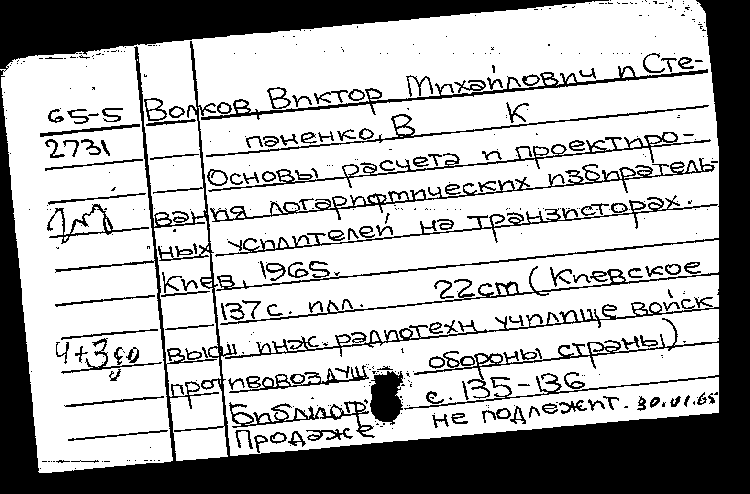 65-5 Волков, Виктор Михайлович и Сте-
2731 паненко, В К
Основы расчета и проектиро-
вания логарифмических избиратель-
ных усилителей на транзисторах.
Киев, 1965.
137 с. илл. 22cm (Киевское
высш. инж. радиотехн. училище войск
противовоздуш обороны страны).
Библиогр с. 135-136
Продаже не подлежит. 30.01.65